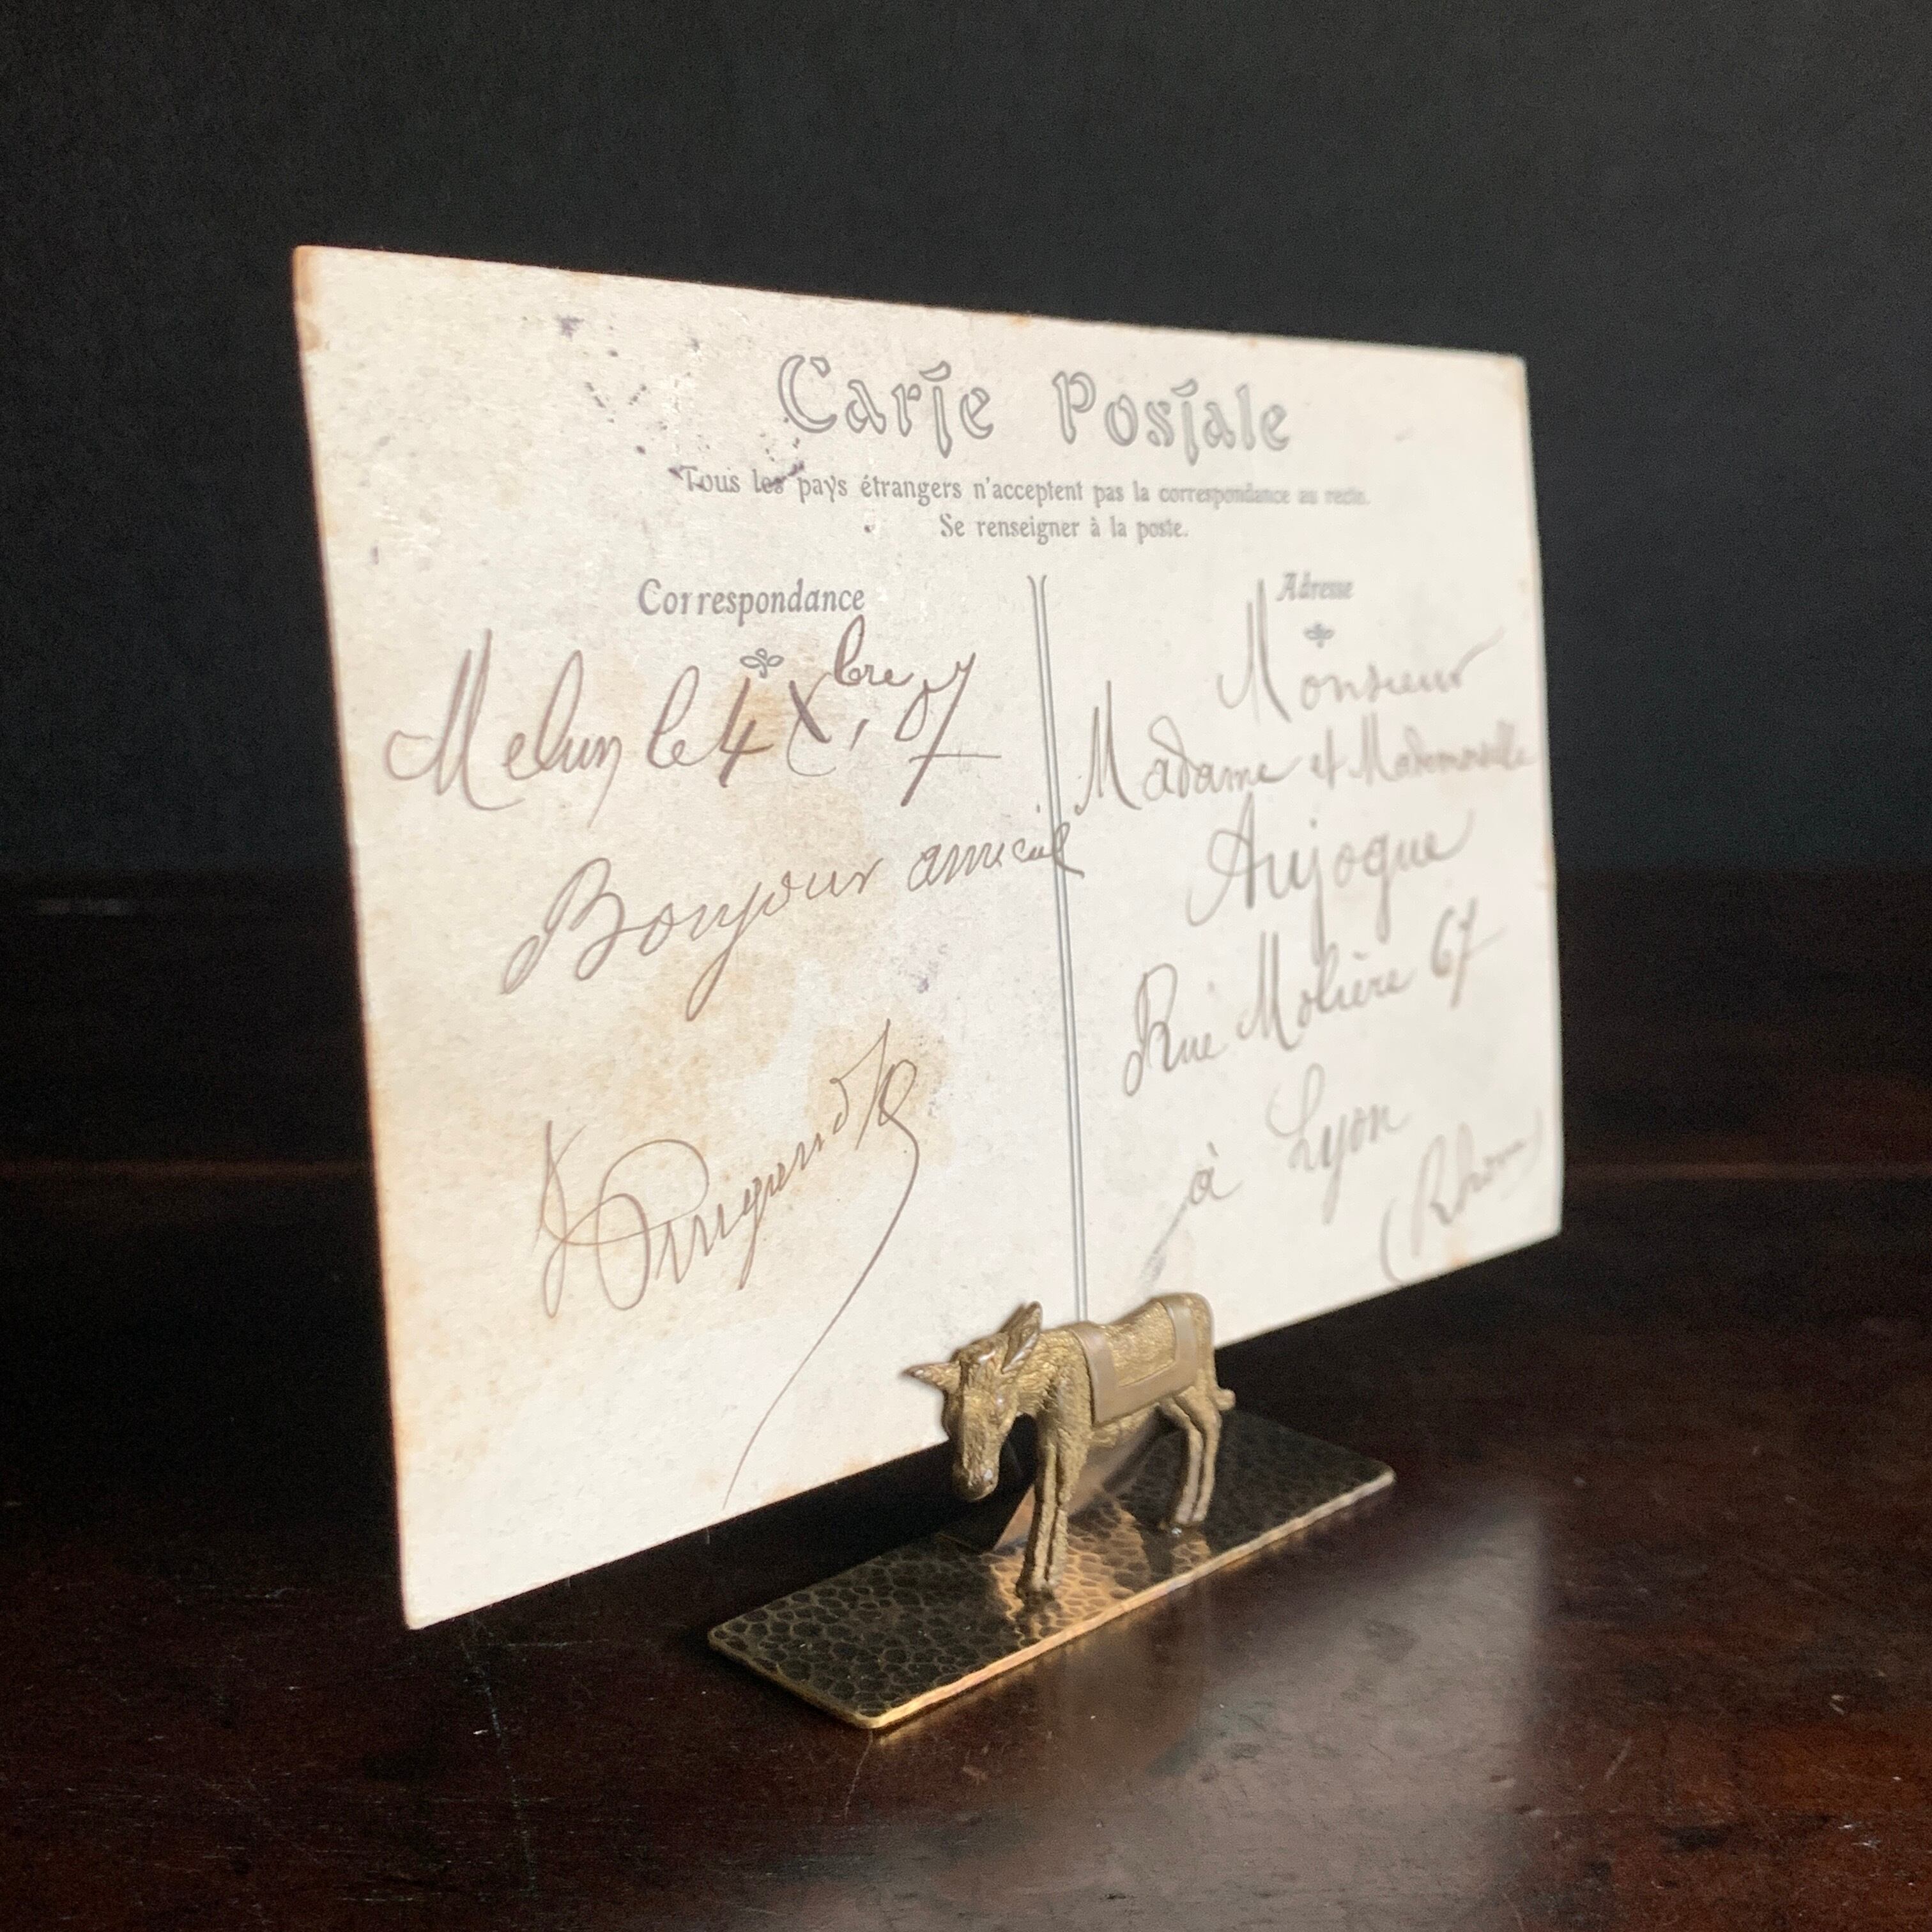 Carte Postale
Tous les pays étrangers n'acceptent pas la correspondance au recto.
Se renseigner à la poste.
Correspondance
Melun le 4 Xbre, 07
Bonjour amical
Adresse
Monsieur
Madame et Mademoiselle
Aujogue
Rue Molière 67
à Lyon
(Rhône)